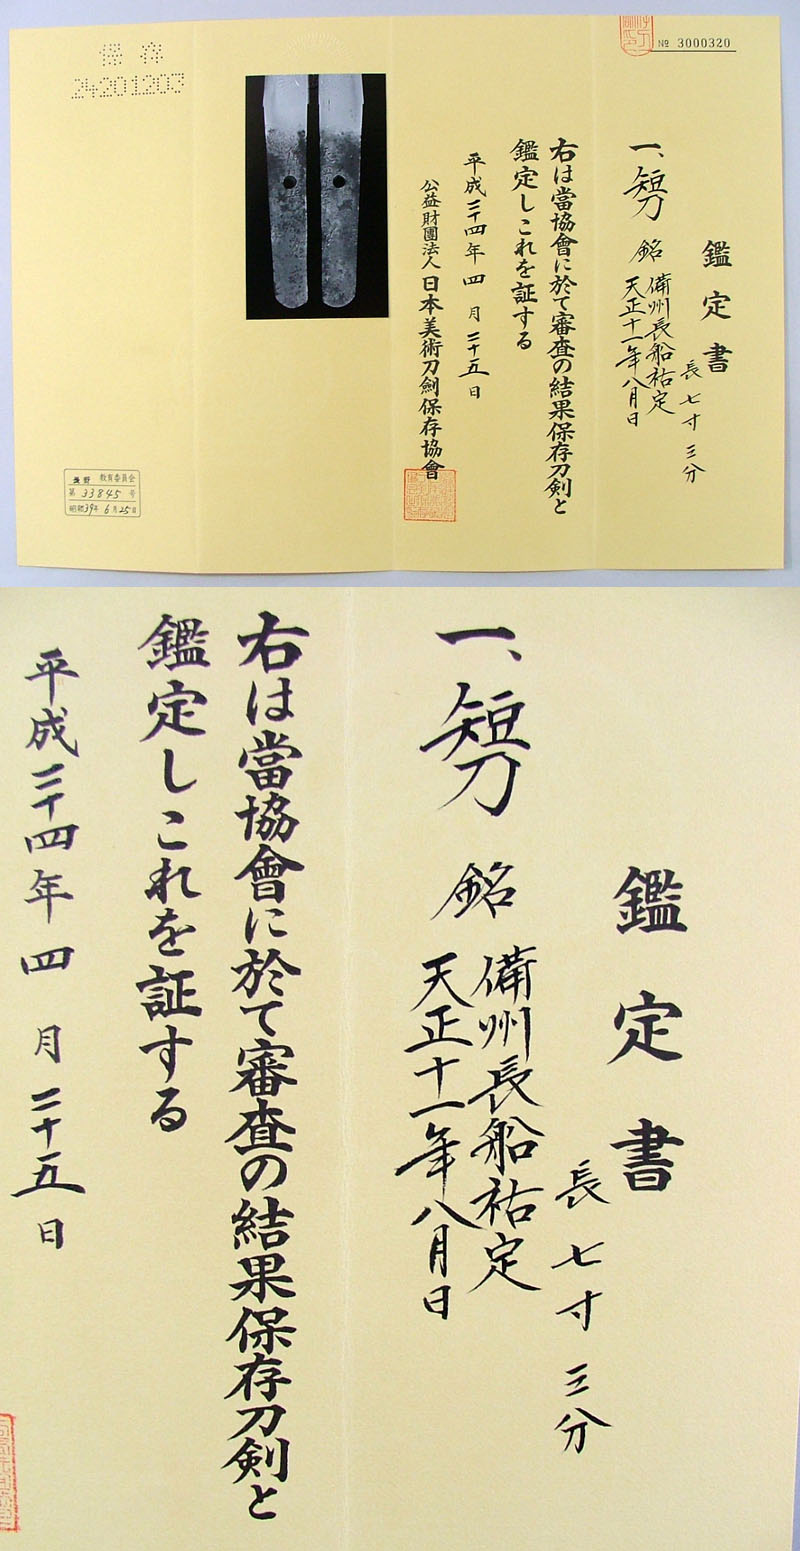 № 3000320
鑑定書
長七寸三分
一、短刀 銘 備州長船祐定
天正十一年八月日
右は當協會に於て審査の結果保存刀剣と
鑑定しこれを証する
平成二十四年四月二十五日
公益財團法人日本美術刀劍保存協會
保存
24201203
長野 教育委員会
第33845号
昭和39年6月25日
鑑定書
長七寸三分
一、短刀 銘 備州長船祐定
天正十一年八月日
右は當協會に於て審査の結果保存刀剣と
鑑定しこれを証する
平成二十四年四月二十五日